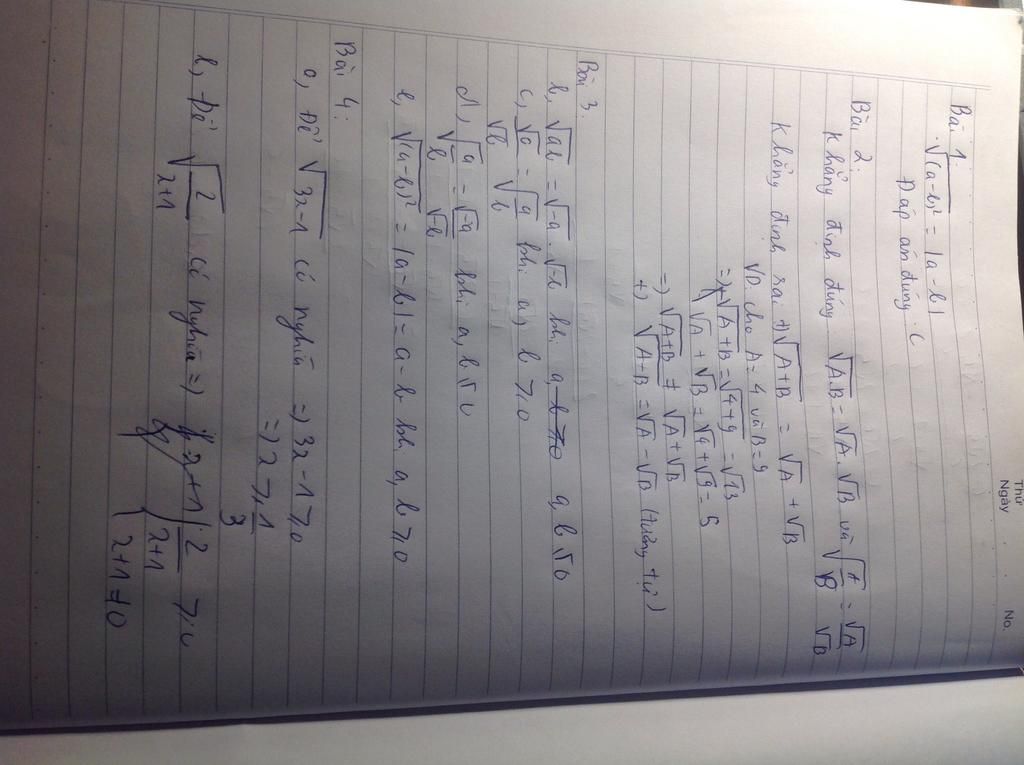 Thứ
Ngày
No.
Bài 1:
√(a-b)² = |a-b|
Đáp án đúng: C
Bài 2:
Khẳng định đúng √A.B = √A.√B và √A/B = √A/√B
Khẳng định sai +) √A+B = √A + √B
VD cho A=4 và B=9
=> √A+B = √4+9 = √13
√A + √B = √4+√9 = 5
=> √A+B ≠ √A+√B
+) √A-B = √A-√B (tương tự)
Bài 3.
b, √ab = √-a.√-b khi a, b ≤ 0
c, √a/√b = √a/b khi a, b ≥ 0
d, √a/√b = √-a/√-b khi a, b ≤ 0
e, √(a-b)² = |a-b| = a-b khi a, b ≥ 0
Bài 4:
a, Để √3x-1 có nghĩa => 3x-1 ≥ 0
=> x ≥ 1/3
b, Để √2/x+1 có nghĩa => { 2/x+1 ≥ 0
x+1 ≠ 0